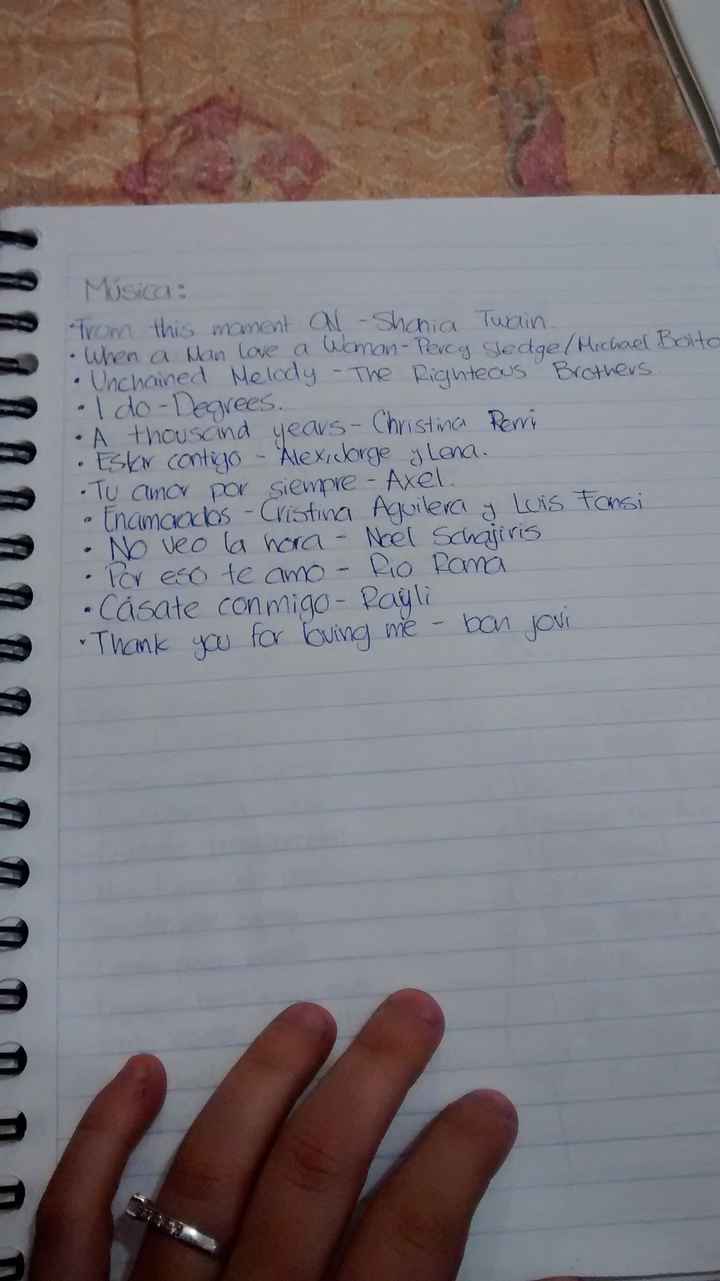 Música:
• From this moment ON - Shania Twain
• When a Man Love a Woman - Percy Sledge/Michael Bolto
• Unchained Melody - The Righteous Brothers
• I do - Degrees.
• A thousand years - Christina Perri
• Estar contigo - Alex, Jorge y Lena.
• Tu amor por siempre - Axel.
• Enamorados - Cristina Aguilera y Luis Fonsi
• No veo la hora - Noel Schajiris
• Por eso te amo - Rio Roma
• Cásate conmigo - Rayli
• Thank you for loving me - bon jovi